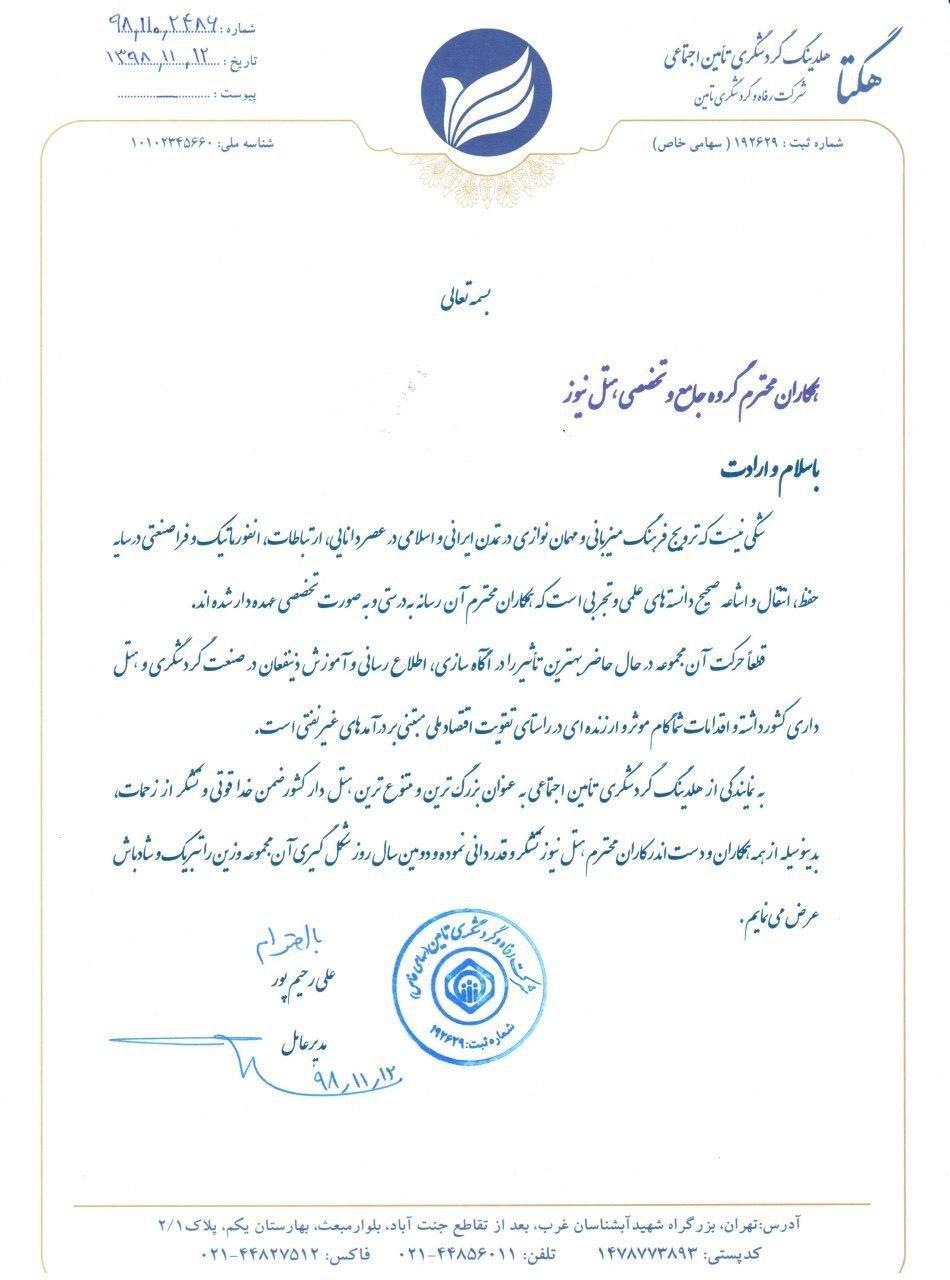 هگتا
هلدینگ گردشگری تأمین اجتماعی
شرکت رفاه و گردشگری تأمین
شماره ثبت : ۱۹۲۶۲۹ ( سهامی خاص)
شماره : ۹۸,۱۱۰,۲۴۸۶
تاریخ : ۱۳۹۸,۱۱,۱۲
پیوست :
شناسه ملی: ۱۰۱۰۲۳۴۵۶۶۰
بسمه تعالی
همکاران محترم گروه جامع و تخصصی هتل نیوز
باسلام و ارادت
شکی نیست که ترویج فرهنگ میزبانی و مهمان نوازی در تمدن ایرانی و اسلامی در عصر دانایی، ارتباطات، انفورماتیک و فراصنعتی در سایه
حفظ، انتقال و اشاعه صحیح دانسته های علمی و تجربی است که همکاران محترم آن رسانه به درستی و به صورت تخصصی عهده دار شده اند.
قطعاً حرکت آن مجموعه در حال حاضر بهترین تأثیر را در آگاه سازی، اطلاع رسانی و آموزش ذینفعان در صنعت گردشگری و هتل
داری کشور داشته و اقدامات شما گام موثر و ارزنده ای در راستای تقویت اقتصاد ملی مبتنی بر درآمدهای غیرنفتی است.
به نمایندگی از هلدینگ گردشگری تأمین اجتماعی به عنوان بزرگ ترین و متنوع ترین هتل دار کشور ضمن خدا قوتی و تشکر از زحمات،
بدینوسیله از همه همکاران و دست اندرکاران محترم هتل نیوز تشکر و قدردانی نموده و دومین سال روز شکل گیری آن مجموعه وزین را تبریک و شادباش
عرض می نمایم.
بااحترام
علی رحیم پور
مدیرعامل
۹۸,۱۱,۱۲
شرکت رفاه و گردشگری تامین (سهامی خاص)
شماره ثبت: ۱۹۲۶۲۹
آدرس:تهران، بزرگراه شهیدآبشناسان غرب، بعد از تقاطع جنت آباد، بلوارمبعث، بهارستان یکم، پلاک۲/۱
کدپستی: ۱۴۷۸۷۷۳۸۹۳ تلفن: ۴۴۸۵۶۰۱۱-۰۲۱ فاکس: ۴۴۸۲۷۵۱۲-۰۲۱